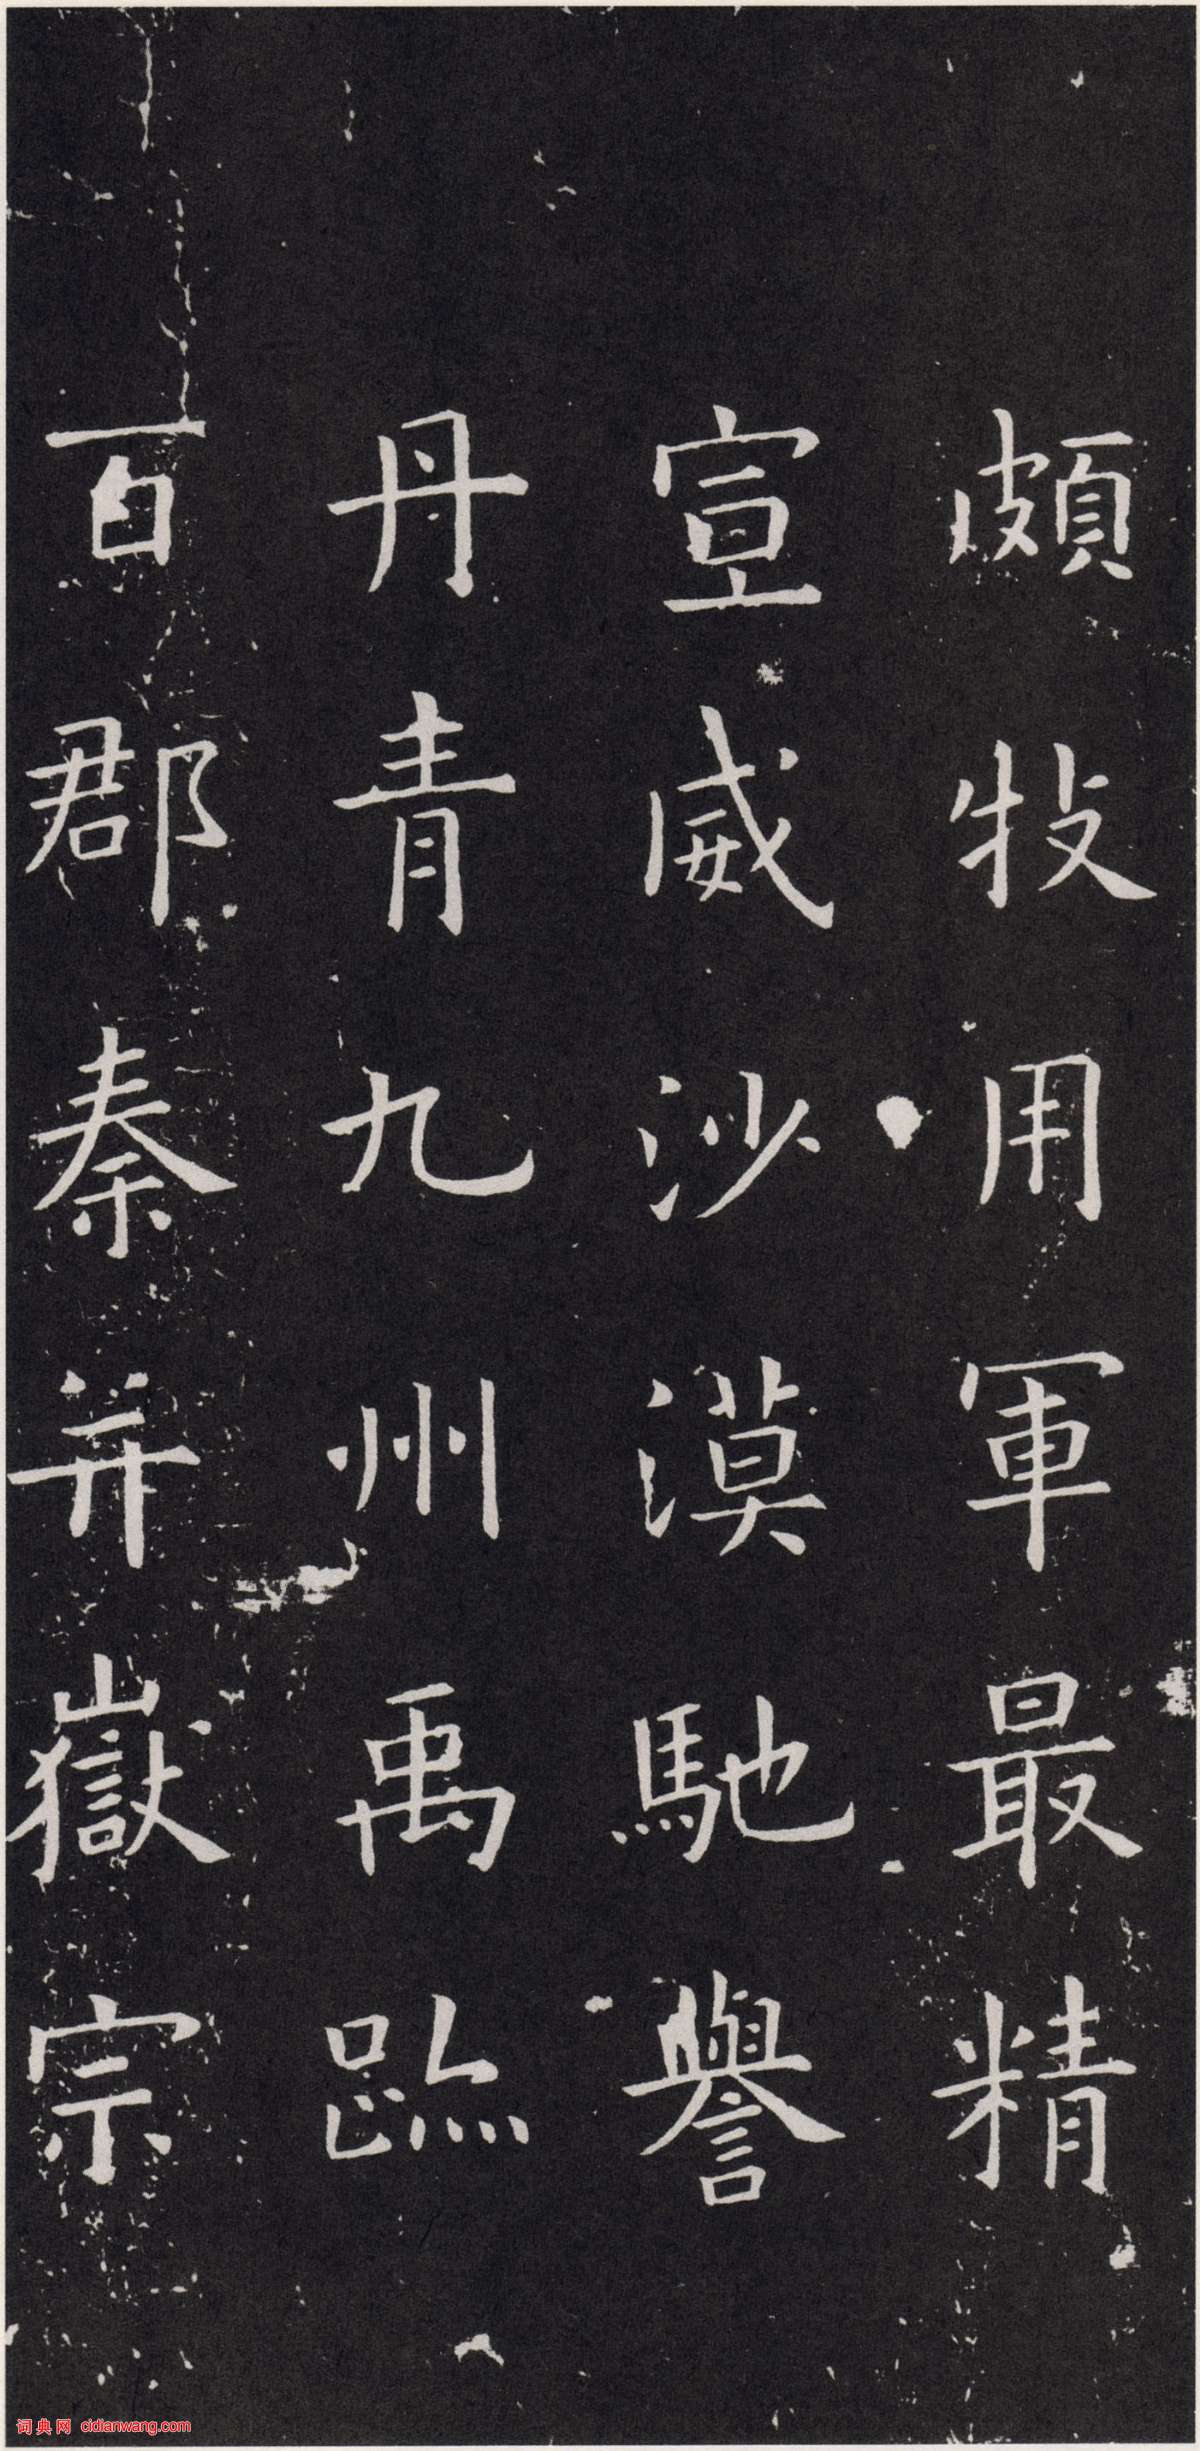 頗牧用軍最精
宣威沙漠馳譽
丹青九州禹跡
百郡秦并嶽宗
词典网 cidianwang.com